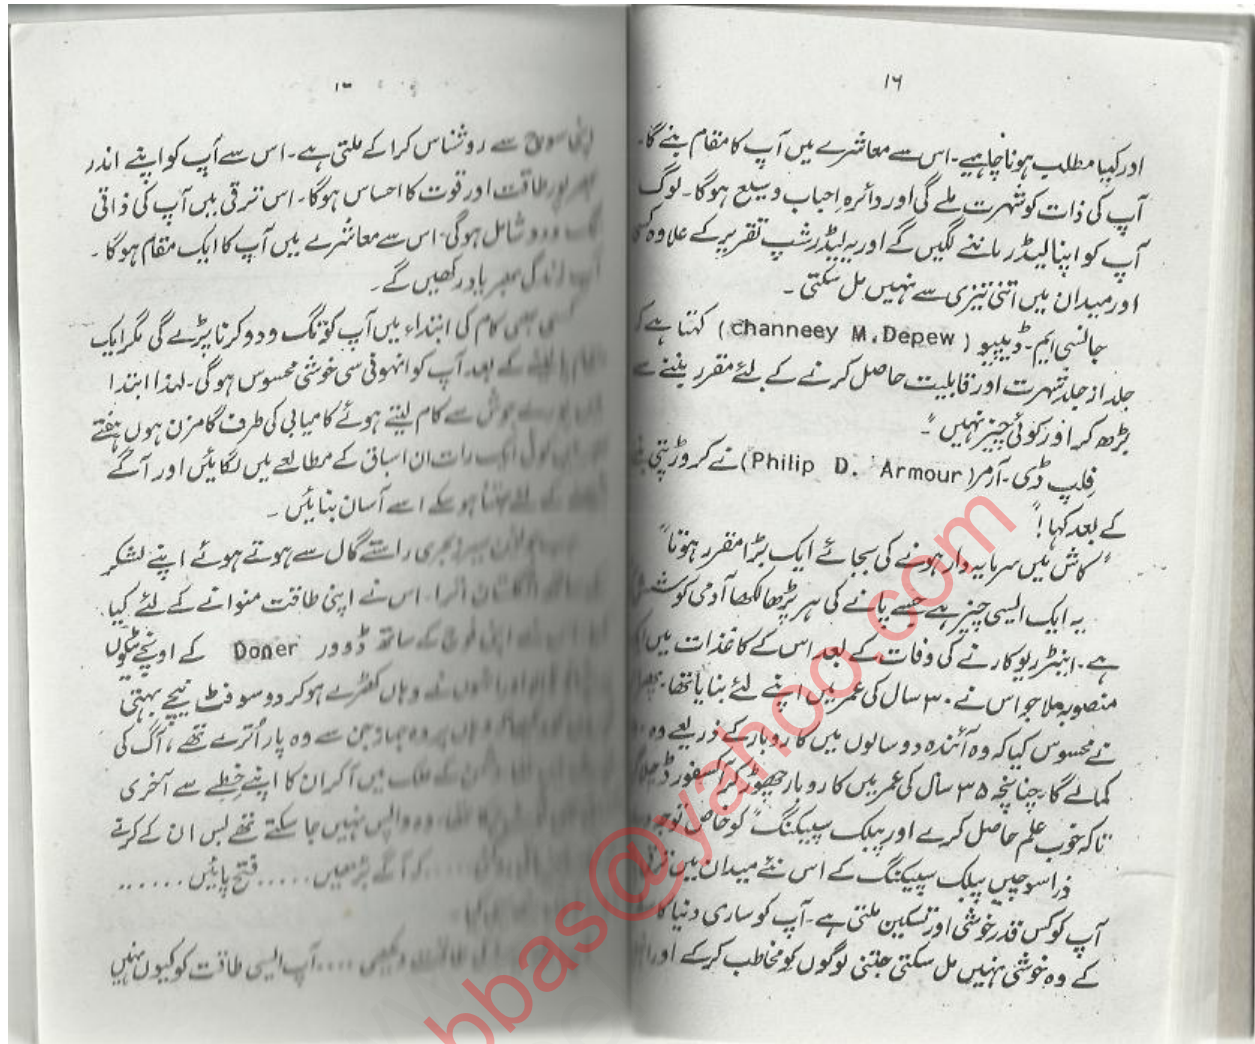 ۱۶
اور کیا مطلب ہونا چاہیے۔ اس سے معاشرے میں آپ کا مقام بنے گا۔
آپ کی ذات کو شہرت ملے گی اور دائرہ احباب وسیع ہوگا۔ لوگ
آپ کو اپنا لیڈر ماننے لگیں گے اور یہ لیڈر شپ تقریر کے علاوہ
اور میدان میں اتنی تیزی سے نہیں مل سکتی ۔
چانسی ایم۔ ڈیپیو ( channeey M.Depew ) کہتا ہے
جلد از جلد شہرت اور قابلیت حاصل کرنے کے لئے مقرر بننے سے
بڑھ کر اور کوئی چیز نہیں "۔
فلپ ڈی۔ آرمر ( Philip D. Armour) نے کروڑ پتی
کے بعد کہا !"
"کاش میں سرمایہ دار ہونے کی بجائے ایک بڑا مقرر ہوتا"
یہ ایک ایسی چیز ہے جسے پانے کی ہر پڑھا لکھا آدمی کوشش
ہے۔ اینڈریو کارنے کی وفات کے بعد اس کے کاغذات میں
منصوبہ ملا جو اس نے ۳۰ سال کی عمر میں اپنے لئے بنایا تھا۔
نے محسوس کیا کہ وہ آئندہ دو سالوں میں کاروبار کے ذریعے وہ
کمالے گا۔ چنانچہ ۳۵ سال کی عمر میں کاروبار چھوڑ کر آکسفورڈ
تاکہ خوب علم حاصل کرے اور پبلک سپیکنگ" کو خاص توجہ
ذرا سوچیں پبلک سپیکنگ کے اس نئے میدان میں
آپ کو کس قدر خوشی اور تسکین ملتی ہے۔ آپ کو ساری دنیا
کے وہ خوشی نہیں مل سکتی جتنی لوگوں کو مخاطب کرکے اور
اپنی سوچ سے روشناس کرا کے ملتی ہے۔ اس سے آپ کو اپنے اندر
بھرپور طاقت اور قوت کا احساس ہوگا۔ اس ترقی میں آپ کی ذاتی
تگ و دو شامل ہوگی۔ اس سے معاشرے میں آپ کا ایک مقام ہوگا ۔
زندگی بھر یاد رکھیں گے ۔
کسی بھی کام کی ابتداء میں آپ کو تگ و دو کرنا پڑے گی مگر ایک
کے بعد آپ کو انہونی سی خوشی محسوس ہوگی۔ لہذا ابتدا
جوش سے کام لیتے ہوئے کامیابی کی طرف گامزن ہوں ہفتے
ایک رات ان اسباق کے مطالعے میں لگائیں اور آگے
کے لئے جتنا ہو سکے اسے آسان بنائیں ۔
بحری راستے گال سے ہوتے ہوئے اپنے لشکر
اترا۔ اس نے اپنی طاقت منوانے کے لئے کیا
اپنی فوج کے ساتھ ڈوور Doner کے اونچے ٹیلوں
نے وہاں کھڑے ہوکر دو سو فٹ نیچے بہتی
وہ جہاز جن سے وہ پار اُترے تھے، آگ کی
کے ملک میں آکر ان کا اپنے خطے سے آخری
وہ واپس نہیں جا سکتے تھے بس ان کے کرنے
کہ آگے بڑھیں ..... فتح پائیں ......
کی طاقت دیکھی .... آپ ایسی طاقت کو کیوں نہیں
bbas@yahoo.com